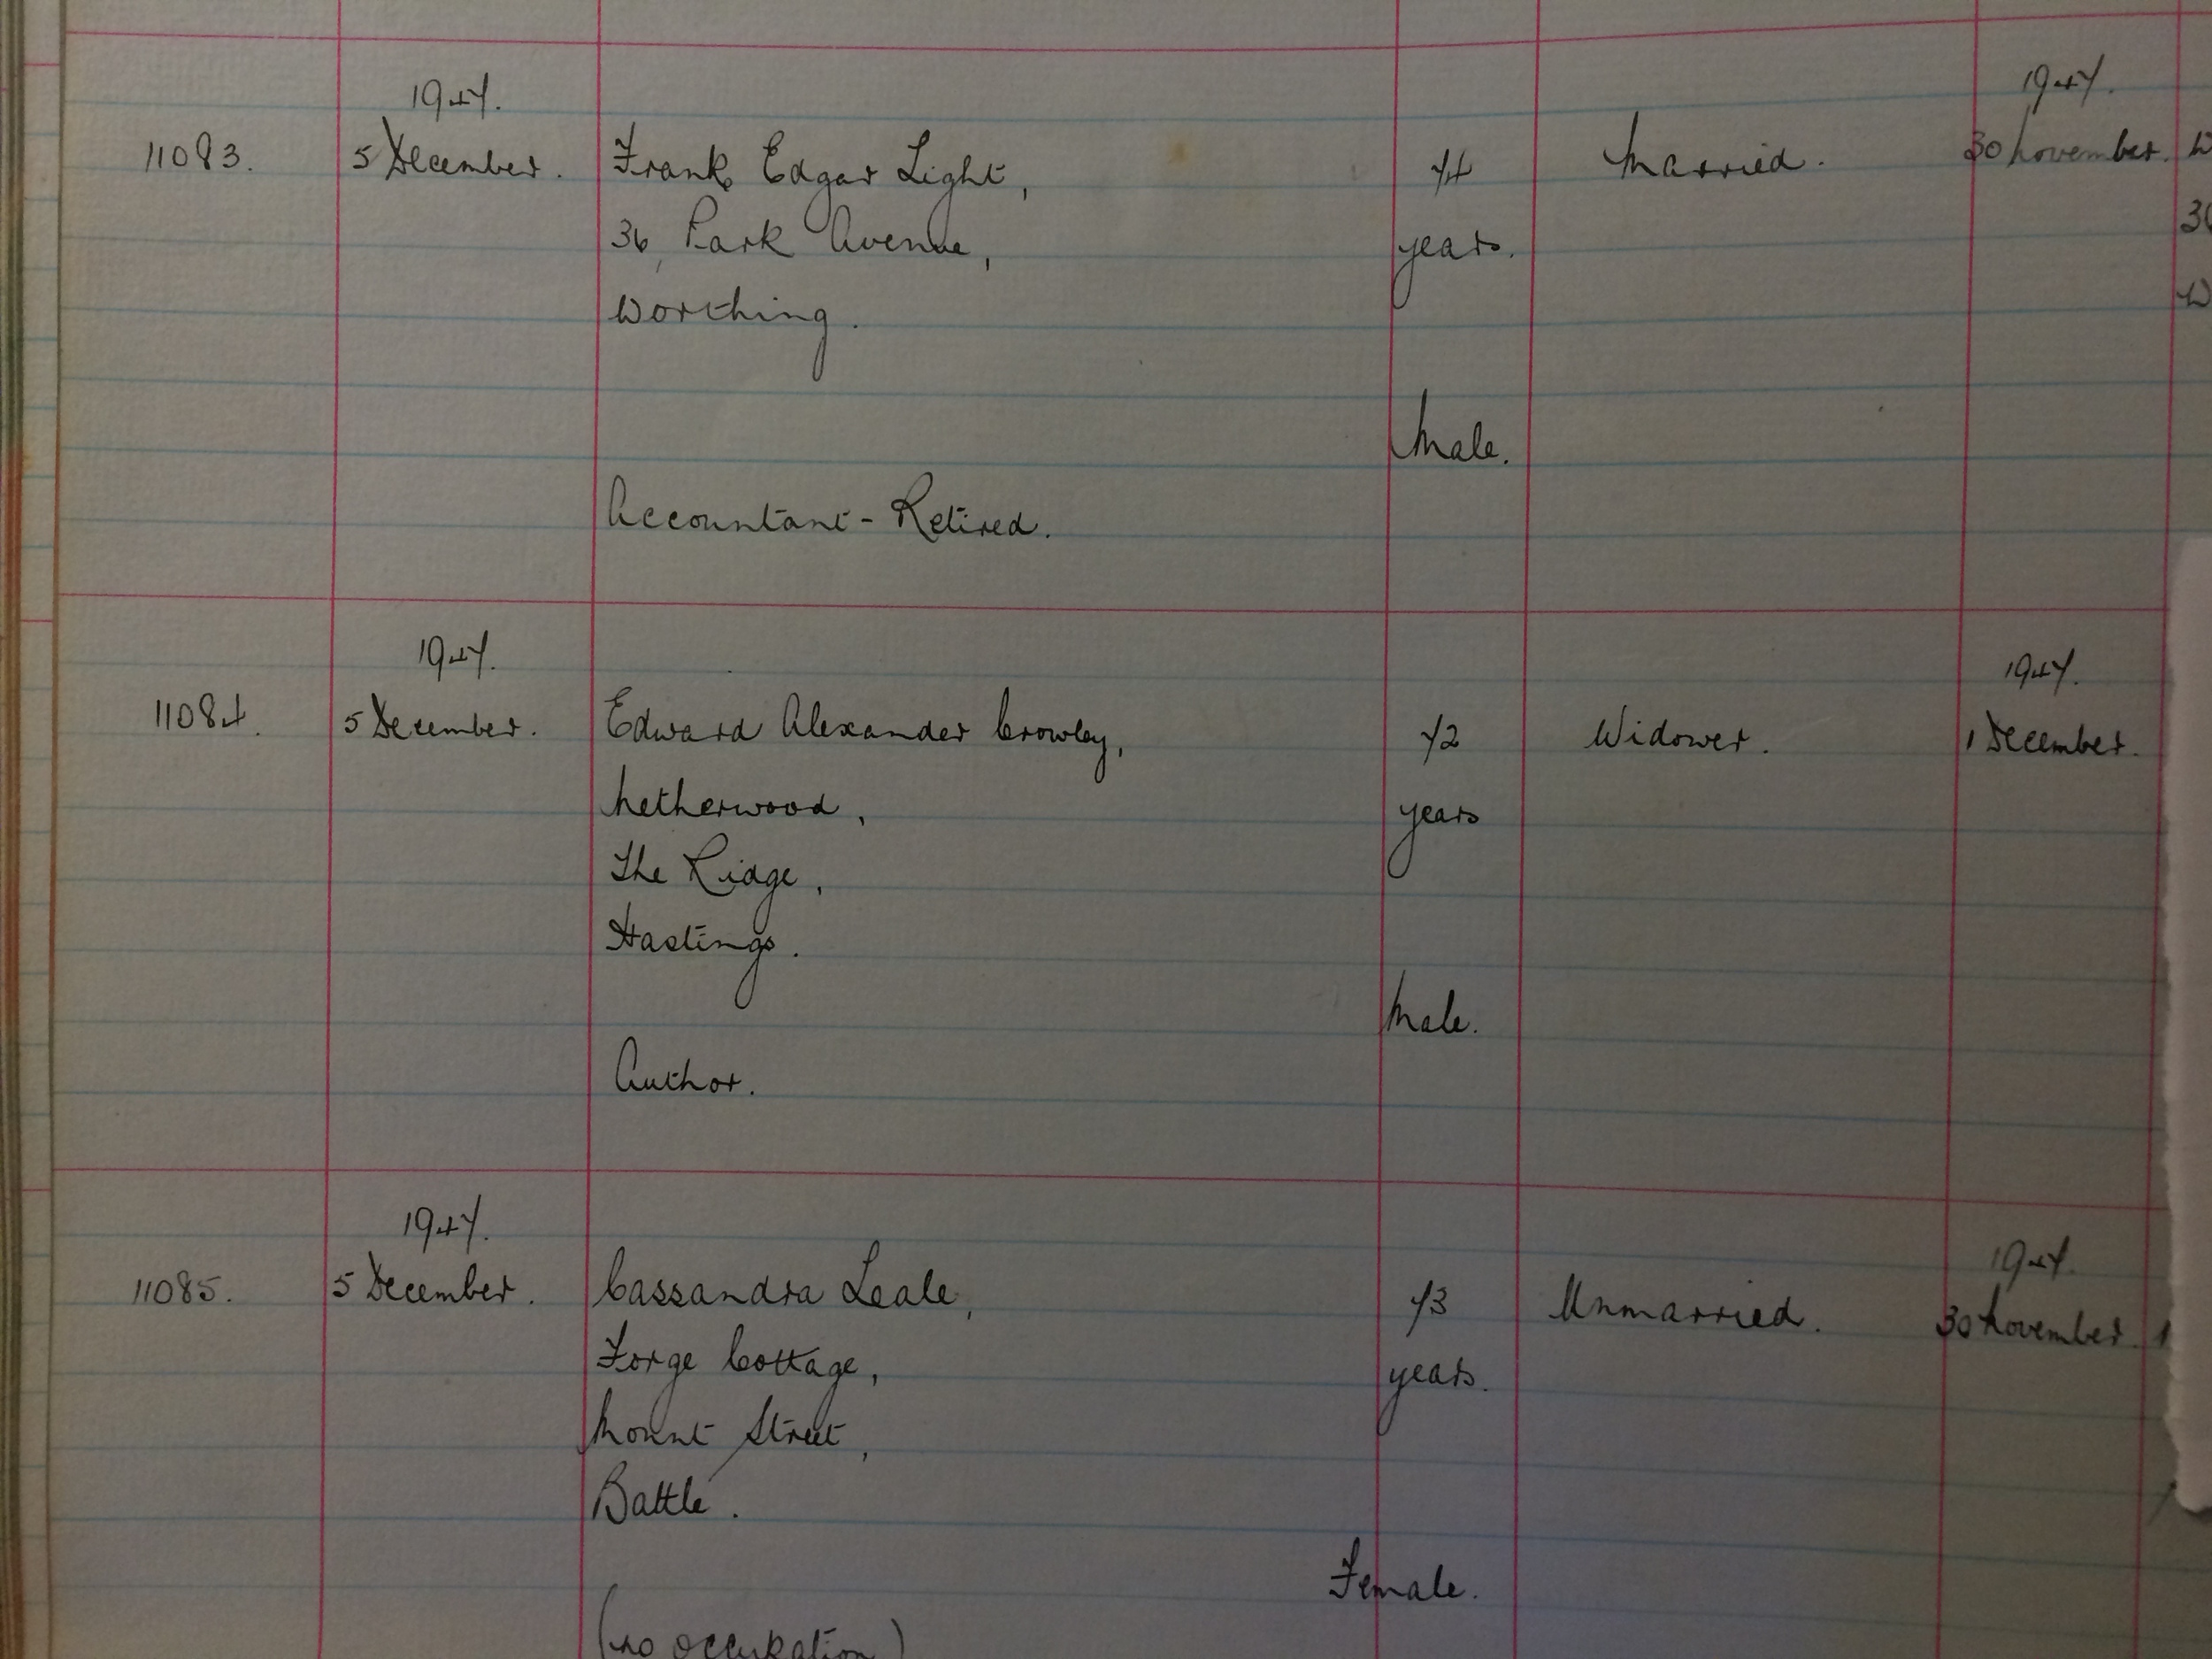 1947.
1947.
11083.
5 December.
Frank Edgar Light,
74
Married.
30 November.
36, Park Avenue,
years.
Worthing.
Male.
Accountant - Retired.
1947.
1947.
11084.
5 December.
Edward Alexander Crowley,
72
Widower.
1 December.
Netherwood,
years
The Ridge,
Hastings.
Male.
Author.
1947.
1947.
11085.
5 December.
Cassandra Leale,
73
Unmarried.
30 November
Forge Cottage,
years.
Mount Street,
Battle.
Female.
(no occupation)